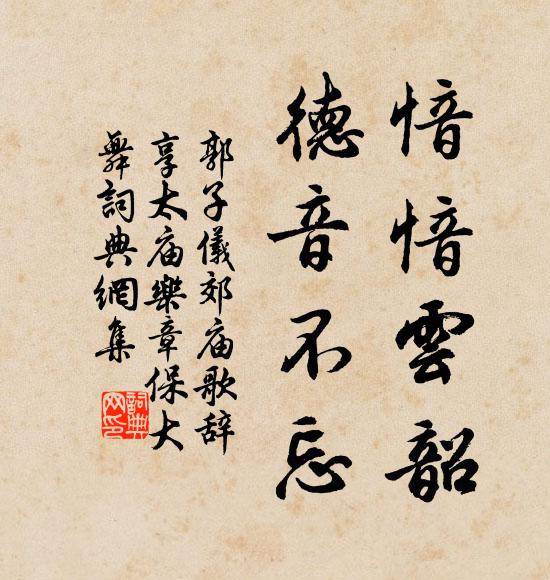 愔愔雲韶
德音不忘
郭子儀郊庙歌辞
享太庙樂章保大
舞詞典網集
詞典
网印